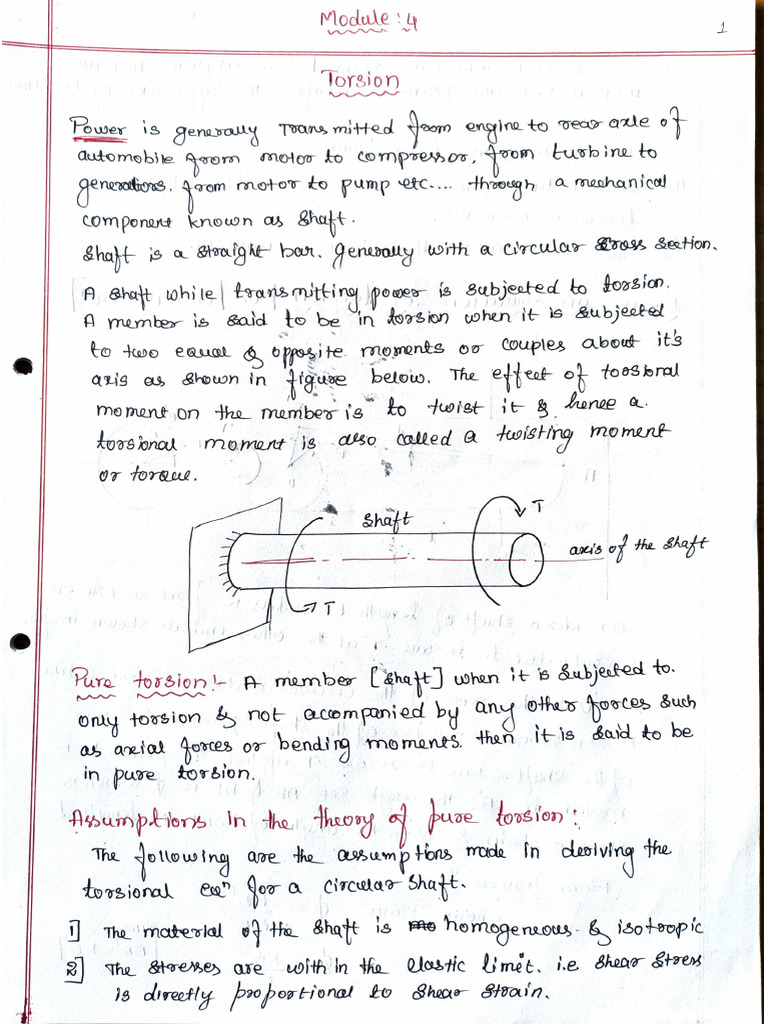 Module : 4
1
Torsion
Power is generally Transmitted from engine to rear axle of
automobile from motor to compressor, from turbine to
generators. from motor to pump etc.... through a mechanical
component known as shaft.
Shaft is a straight bar. Generally with a circular cross section.
A shaft while transmitting power is subjected to torsion.
A member is said to be in torsion when it is subjected
to two equal & opposite moments or couples about it's
axis as shown in figure below. The effect of toosional
moment on the member is to twist it & hence a
torsional moment is also called a twisting moment
or torque.
Shaft
T
axis of the shaft
T
Pure torsion:- A member [shaft] when it is subjected to
only torsion & not accompanied by any other forces such
as axial forces or bending moments. then it is said to be
in pure torsion.
Assumptions in the theory of pure torsion:
The following are the assumptions made in deriving the
torsional eqn for a circular shaft.
1] The material of the shaft is homogeneous & isotropic
2] The stresses are with in the elastic limit. i.e shear stress
is directly proportional to shear strain.